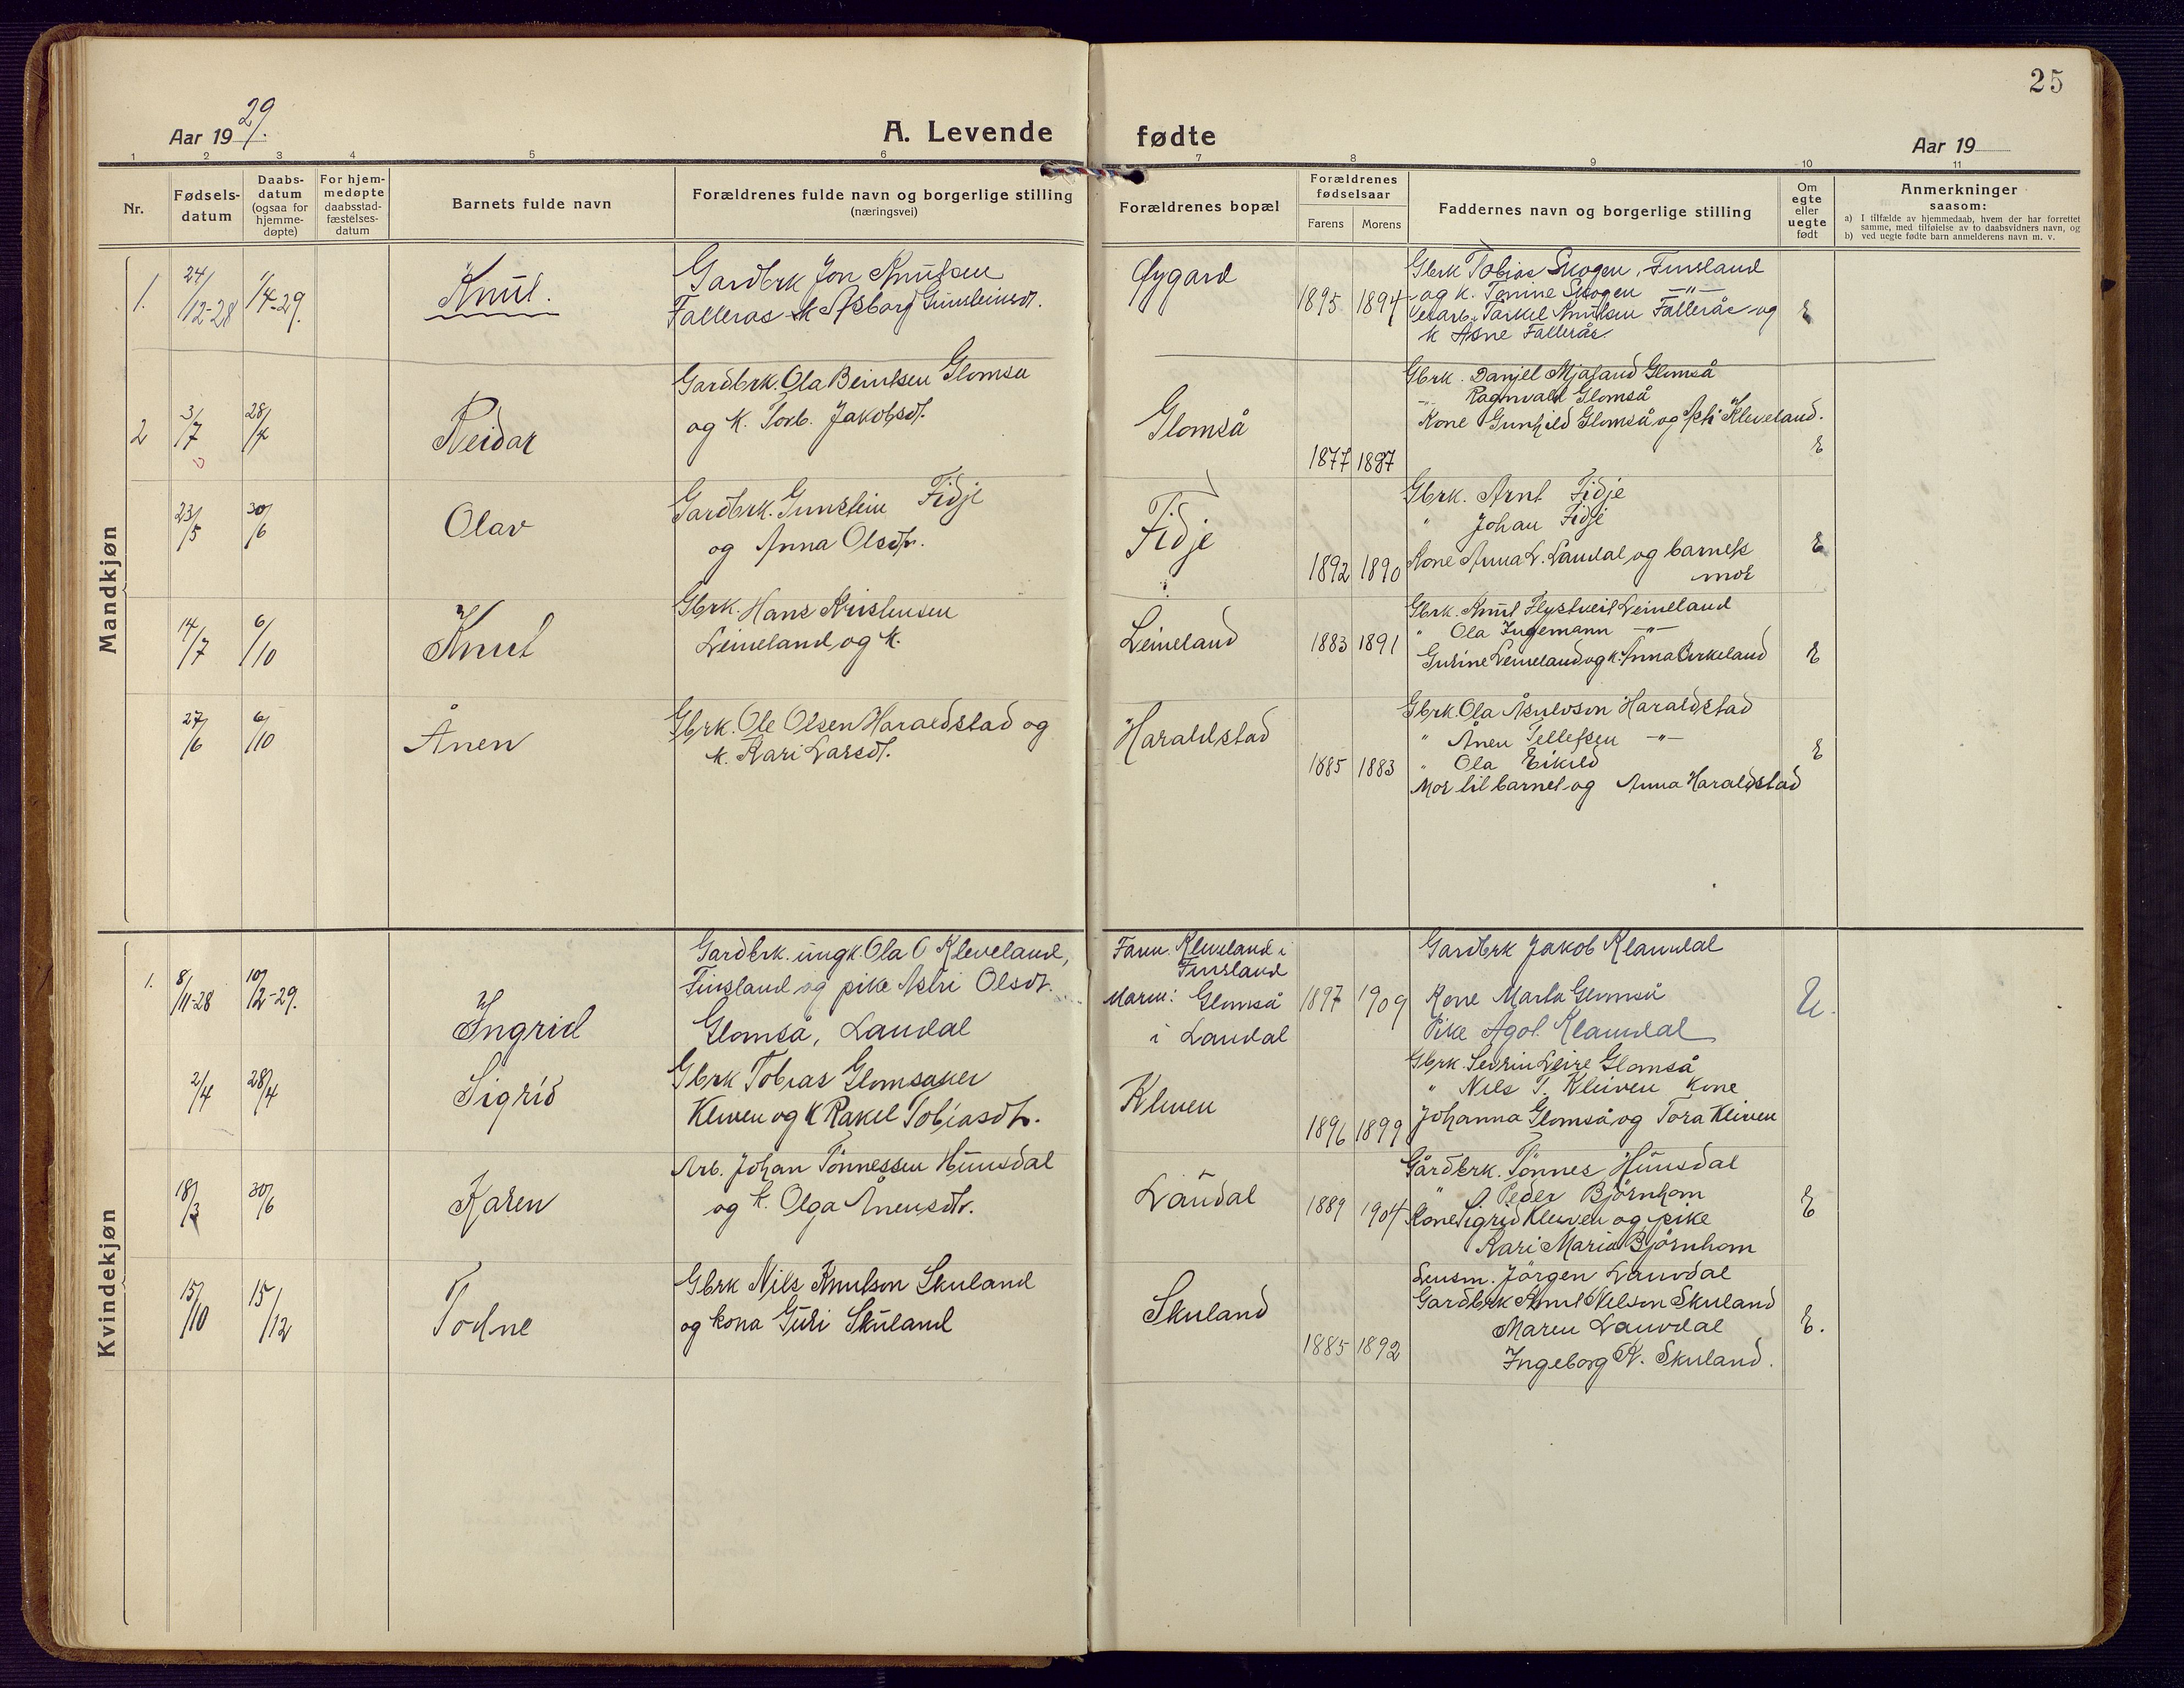 25
Aar 1929.
A. Levende fødte
Aar 19
1 2 3 4 5 6 7 8 9 10 11
Nr.
Fødsels-
datum
Daabs-
datum
(ogsaa for
hjemme-
døpte)
For hjem-
medøpte
daabsstad-
fæstelses-
datum
Barnets fulde navn
Forældrenes fulde navn og borgerlige stilling
(næringsvei)
Forældrenes bopæl
Forældrenes
fødselsaar
Farens Morens
Faddernes navn og borgerlige stilling
Om
egte
eller
uegte
født
Anmerkninger
saasom:
a) I tilfælde av hjemmedaab, hvem der har forrettet
samme, med tilføielse av to daabsvidners navn, og
b) ved uegte fødte barn anmelderens navn m. v.
Mandkjøn
1. 24/12-28 1/4-29. Knut.
Gardbrk Jon Knutsen
Falleras k Asborg
Øygard
1895 1894
Gbrk Tobias Skogen, Finsland
og k. Tomine Skogen -"-
Tarkel Knutsen Fallerås og
k Åsne Fallerås.
E
2 3/7 28/4 Reidar
Gardbrk. Ola Beintsen Glomsa
og k. Torb. Jakobsdt.
Glomså
1877 1887
Gbrk. Danjel Mjaland Glomså
" Ragnvald Glomså
Kone Gunhild Glomså og Kleveland.
E
23/5 30/6 Olav
Gardbrk. Gunstein Fidje
og Anna Olsdtr.
Fidje
1892 1890
Gbrk. Arnt Fidje
" Johan Fidje
Kone Anna L. Laudal og barnets
mor
E
14/7 6/10 Knut
Gbrk. Hans Kristensen
Leineland og k.
Leineland
1883 1891
Gbrk. Knut Leineland
" Ola Ingemann -"-
Gurine Leineland og k. Anna Birkeland
E
27/6 6/10 Ånen
Gbrk. Ole Olsen Haraldstad og
k. Kari Larsdt.
Haraldstad
1885 1883
Gbrk. Ola Asulvson Haraldstad
" Ånen Tellefsen -"-
" Ola Eikild
Mor til barnet og Anna Haraldstad
E
Kvindekjøn
1. 8/11-28 10/2-29. Ingrid
Gardbrk. ungk. Ola O Kleveland,
Finsland og pike Astri Olsdt.
Glomså, Laudal
Faren. Kleveland i
Finsland
Moren: Glomså
i Laudal
1897 1909
Gardbrk Jakob Klaundal
Kone Marta Glomså
Pike Agot. Klaundal
U.
2/4 28/4 Sigrid
Gbrk Tobias Glomsaker
Kleven og k Rakel Tobiasdtr.
Kleven
1896 1899
Gbrk. Leire Glomså
" Nils T. Kleiven Kone
Johanna Glomså og Tora Kleiven
18/3 30/6 Karen
Arb. Johan Tönnessen Hunsdal
og k. Olga Ånensdtr.
Laudal
1889 1904
Gårdbrk. Tönnes Hunsdal
" Peder Björnhom
Kone Sigrid Kleiven og pike
Kari Maria Björnhom
E
15/10 15/12 Todne
Gbrk Nils Knutson Skuland
og kona Guri Skuland
Skuland
1885 1892
Lensm. Jörgen Lauvdal
Gardbrk Knut Nilson Skuland
Maren Lauvdal
Ingeborg K. Skuland.
E.